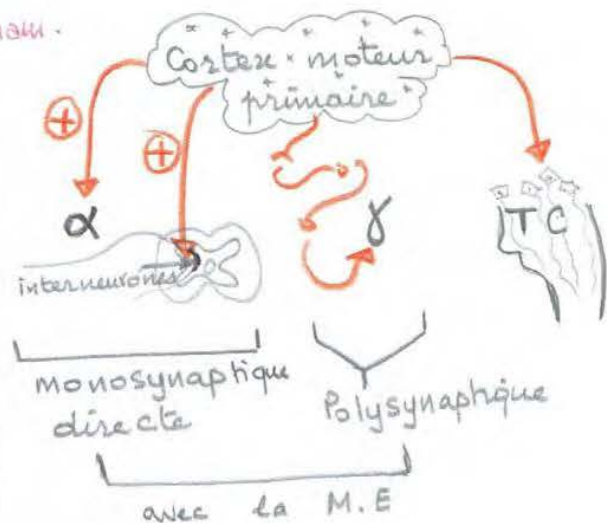 Cortex moteur
primaire
+
+
α
γ
T C
interneurones
monosynaptique
directe
Polysynaptique
avec la M.E